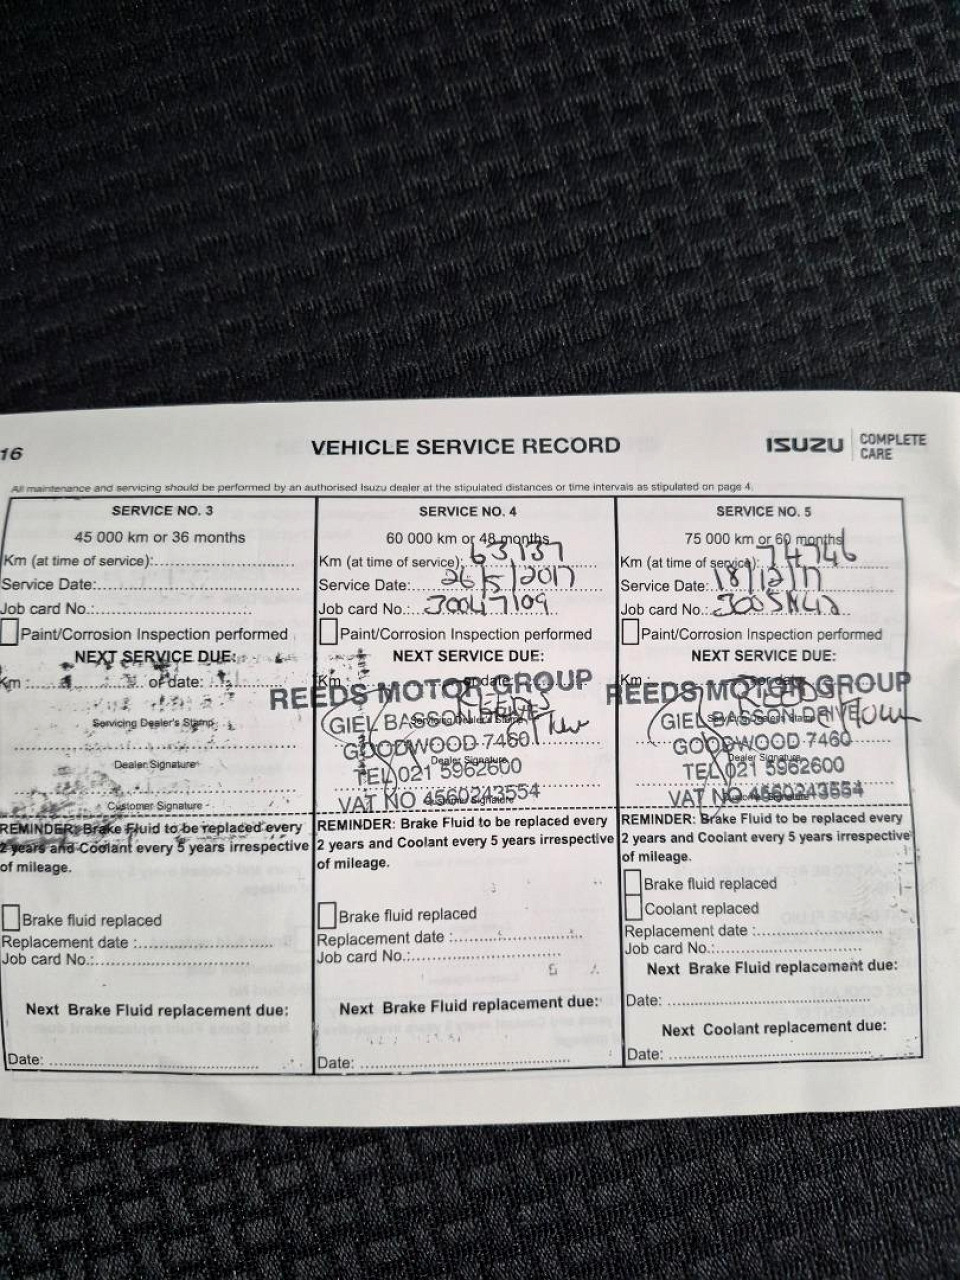 16
VEHICLE SERVICE RECORD
ISUZU COMPLETE CARE
All maintenance and servicing should be performed by an authorised Isuzu dealer at the stipulated distances or time intervals as stipulated on page 4.
SERVICE NO. 3
45 000 km or 36 months
Km (at time of service):
Service Date:
Job card No.:
Paint/Corrosion Inspection performed
NEXT SERVICE DUE:
Km : or date:
Servicing Dealer's Stamp
Dealer Signature
Customer Signature
REMINDER: Brake Fluid to be replaced every
2 years and Coolant every 5 years irrespective
of mileage.
Brake fluid replaced
Replacement date :
Job card No.:
Next Brake Fluid replacement due:
Date:
SERVICE NO. 4
60 000 km or 48 months
Km (at time of service): 63737
Service Date: 26/5/2017
Job card No.: 30047109
Paint/Corrosion Inspection performed
NEXT SERVICE DUE:
Km : or date:
REEDS MOTOR GROUP
GIEL BASSON DRIVE
Servicing Dealer's Stamp
GOODWOOD 7460
Dealer Signature
TEL 021 5962600
VAT NO 4560243554
Customer Signature
REMINDER: Brake Fluid to be replaced every
2 years and Coolant every 5 years irrespective
of mileage.
Brake fluid replaced
Replacement date :
Job card No.:
Next Brake Fluid replacement due:
Date:
SERVICE NO. 5
75 000 km or 60 months
Km (at time of service): 74746
Service Date: 18/12/17
Job card No.:
Paint/Corrosion Inspection performed
NEXT SERVICE DUE:
Km : or date:
REEDS MOTOR GROUP
GIEL BASSON DRIVE
Servicing Dealer's Stamp
GOODWOOD 7460
Dealer Signature
TEL 021 5962600
VAT NO 4560243554
REMINDER: Brake Fluid to be replaced every
2 years and Coolant every 5 years irrespective
of mileage.
Brake fluid replaced
Coolant replaced
Replacement date :
Job card No.:
Next Brake Fluid replacement due:
Date:
Next Coolant replacement due:
Date: